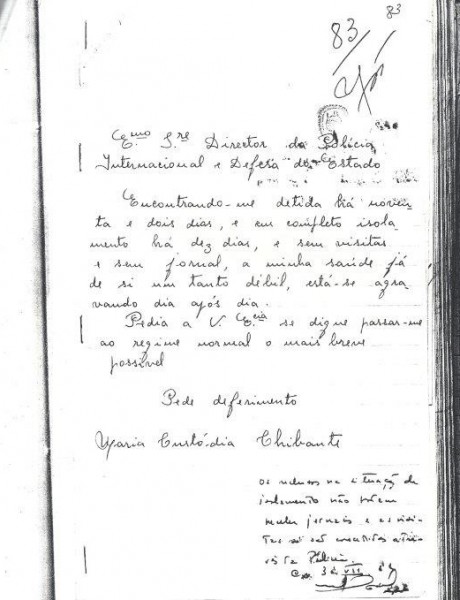 83
83
Exmo Snr. Director da Polícia
Internacional e Defesa do Estado
Encontrando-me detida há noven-
ta e dois dias, e em completo isola
mento há dez dias, e sem visitas
e sem jornal, a minha saúde já
de si um tanto débil, está-se agra
vando dia após dia.
Pedia a V. Excia se digne passar-me
ao regime normal o mais breve
possível
Pede deferimento
Maria Custódia Chibante
os reclusos na situação de
isolamento não podem
receber jornais e as visi-
tas só são